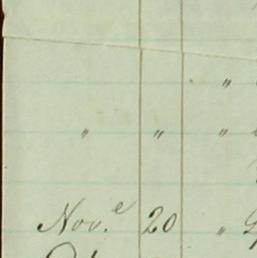 "
" " "
Nov.e 20 "